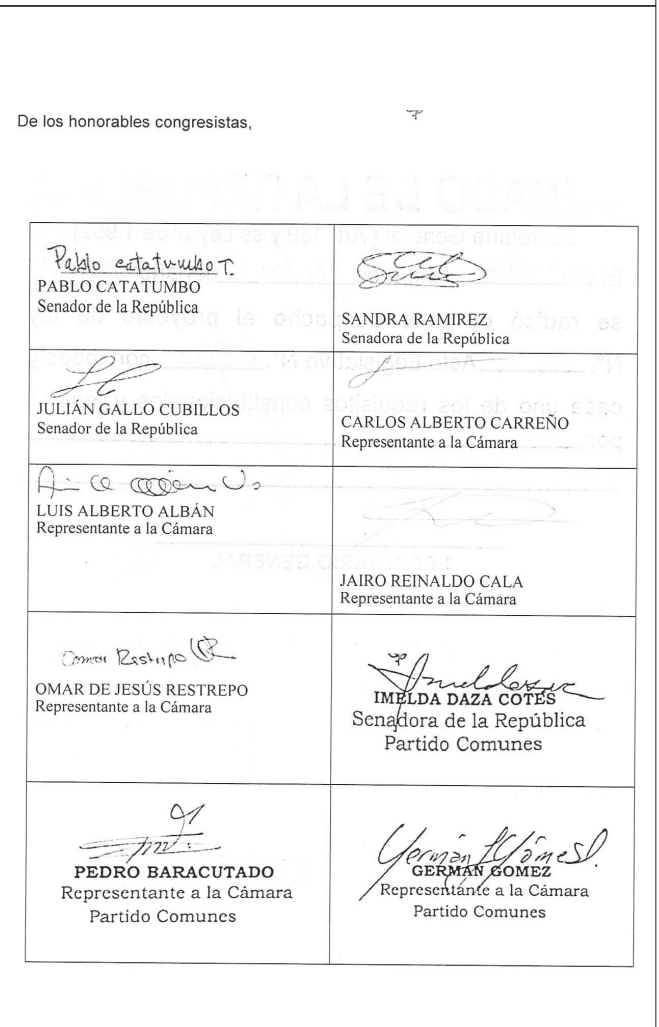 De los honorables congresistas,
Pablo catatumbo T.
PABLO CATATUMBO
Senador de la República
SANDRA RAMIREZ
Senadora de la República
JULIÁN GALLO CUBILLOS
Senador de la República
CARLOS ALBERTO CARREÑO
Representante a la Cámara
LUIS ALBERTO ALBÁN
Representante a la Cámara
JAIRO REINALDO CALA
Representante a la Cámara
Omar Restrepo
OMAR DE JESÚS RESTREPO
Representante a la Cámara
IMELDA DAZA COTES
Senadora de la República
Partido Comunes
PEDRO BARACUTADO
Representante a la Cámara
Partido Comunes
Germán Gómez
GERMAN GOMEZ
Representante a la Cámara
Partido Comunes